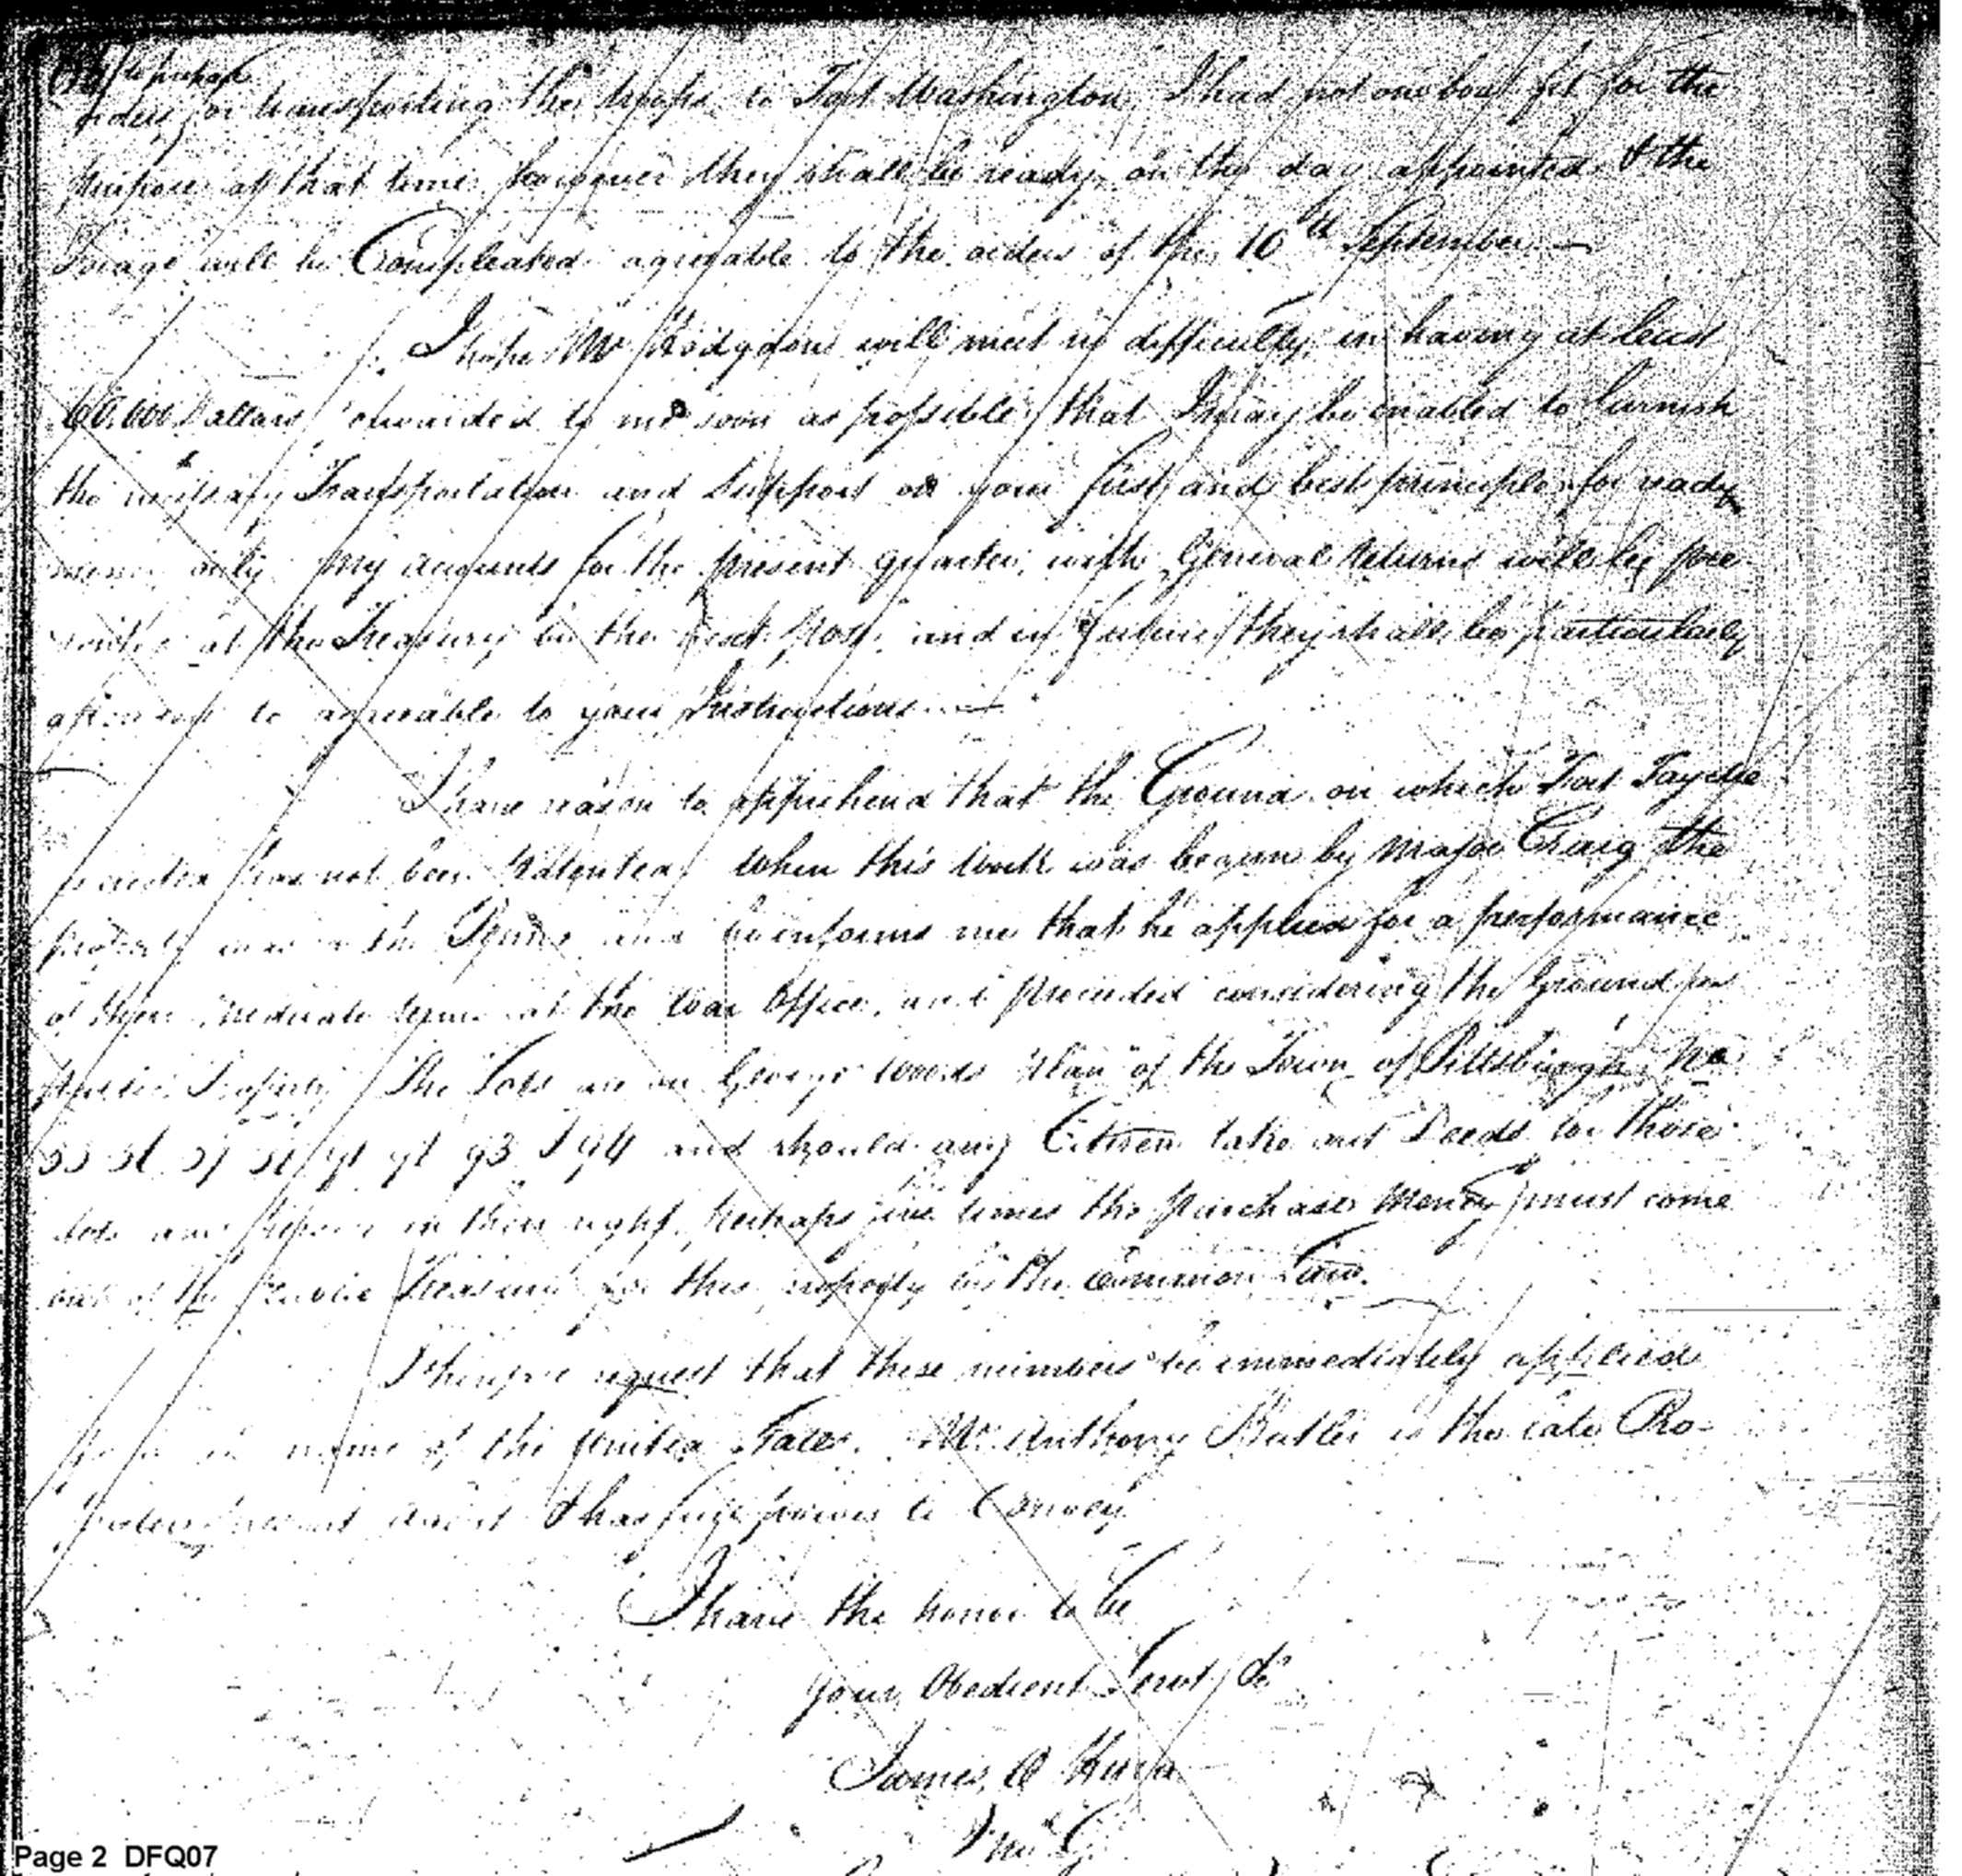 to purchase
orders for transporting the troops to Fort Washington, I had not one boat fit for the
purpose at that time however they shall be ready on the day appointed & the
Forage will be Compleated agreeable to the orders of the 10th September. —
I hope Mr Hodgdon will meet no difficulty in having at least
Dollars forwarded to me soon as possible that I may be enabled to furnish
the necessary Transportation and Support on your first and best principle for ready
money only. my accounts for the present quarter, with General Returns will be pre-
sented at the Treasury by the next Post and in future they shall be particularly
to agreeable to your Instructions. —
I have reason to apprehend that the Ground on which Fort Fayette
is erected has not been Patented when this work was begun by Major Craig the
property was in the Penns and he informs me that he applied for a performance
of their moderate terms at the War Office, and proceeded considering the Ground for
Public Property. The Lots are in George Woods Plan of the Town of Pittsburgh No.
91 92 93 & 94 and should any Citizen take out Deeds for those
Lots and in their right, perhaps five times the purchase Money must come
out of the Public Treasury for this property by the Common Law.
I therefore request that these numbers be immediately applied
for in name of the United States. Mr. Anthony Butler is the late Pro-
& has full powers to Convey.
I have the honor to be
Your Obedient Servt &c
James O Hara
Q M G
Page 2 DFQ07